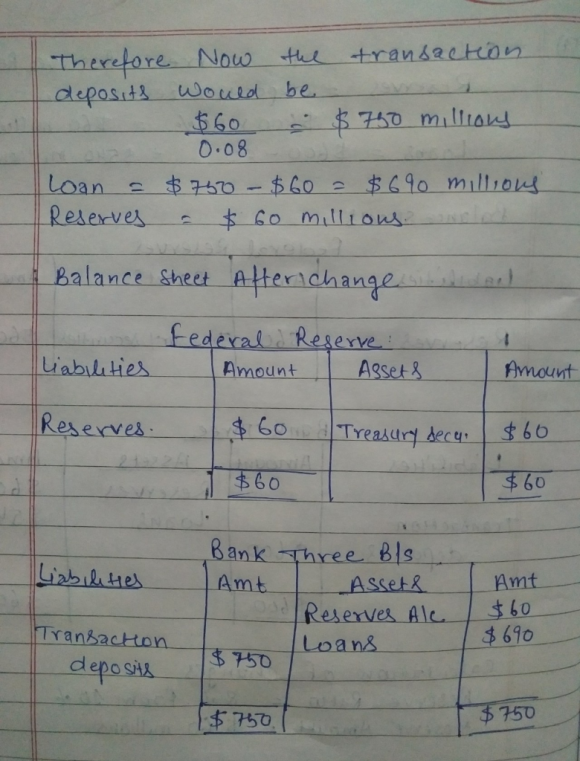 Therefore Now the transaction
deposits would be
$60 = $750 millions
0.08
Loan = $750 - $60 = $690 millions
Reserves = $60 millions
Balance sheet After change
Federal Reserve:
Liabilities Amount Assets Amount
Reserves. $60 Treasury secu. $60
$60 $60
Bank Three B/s
Liabilities Amt Assets Amt
Reserves A/c $60
Transaction Loans $690
deposits $750
$750 $750